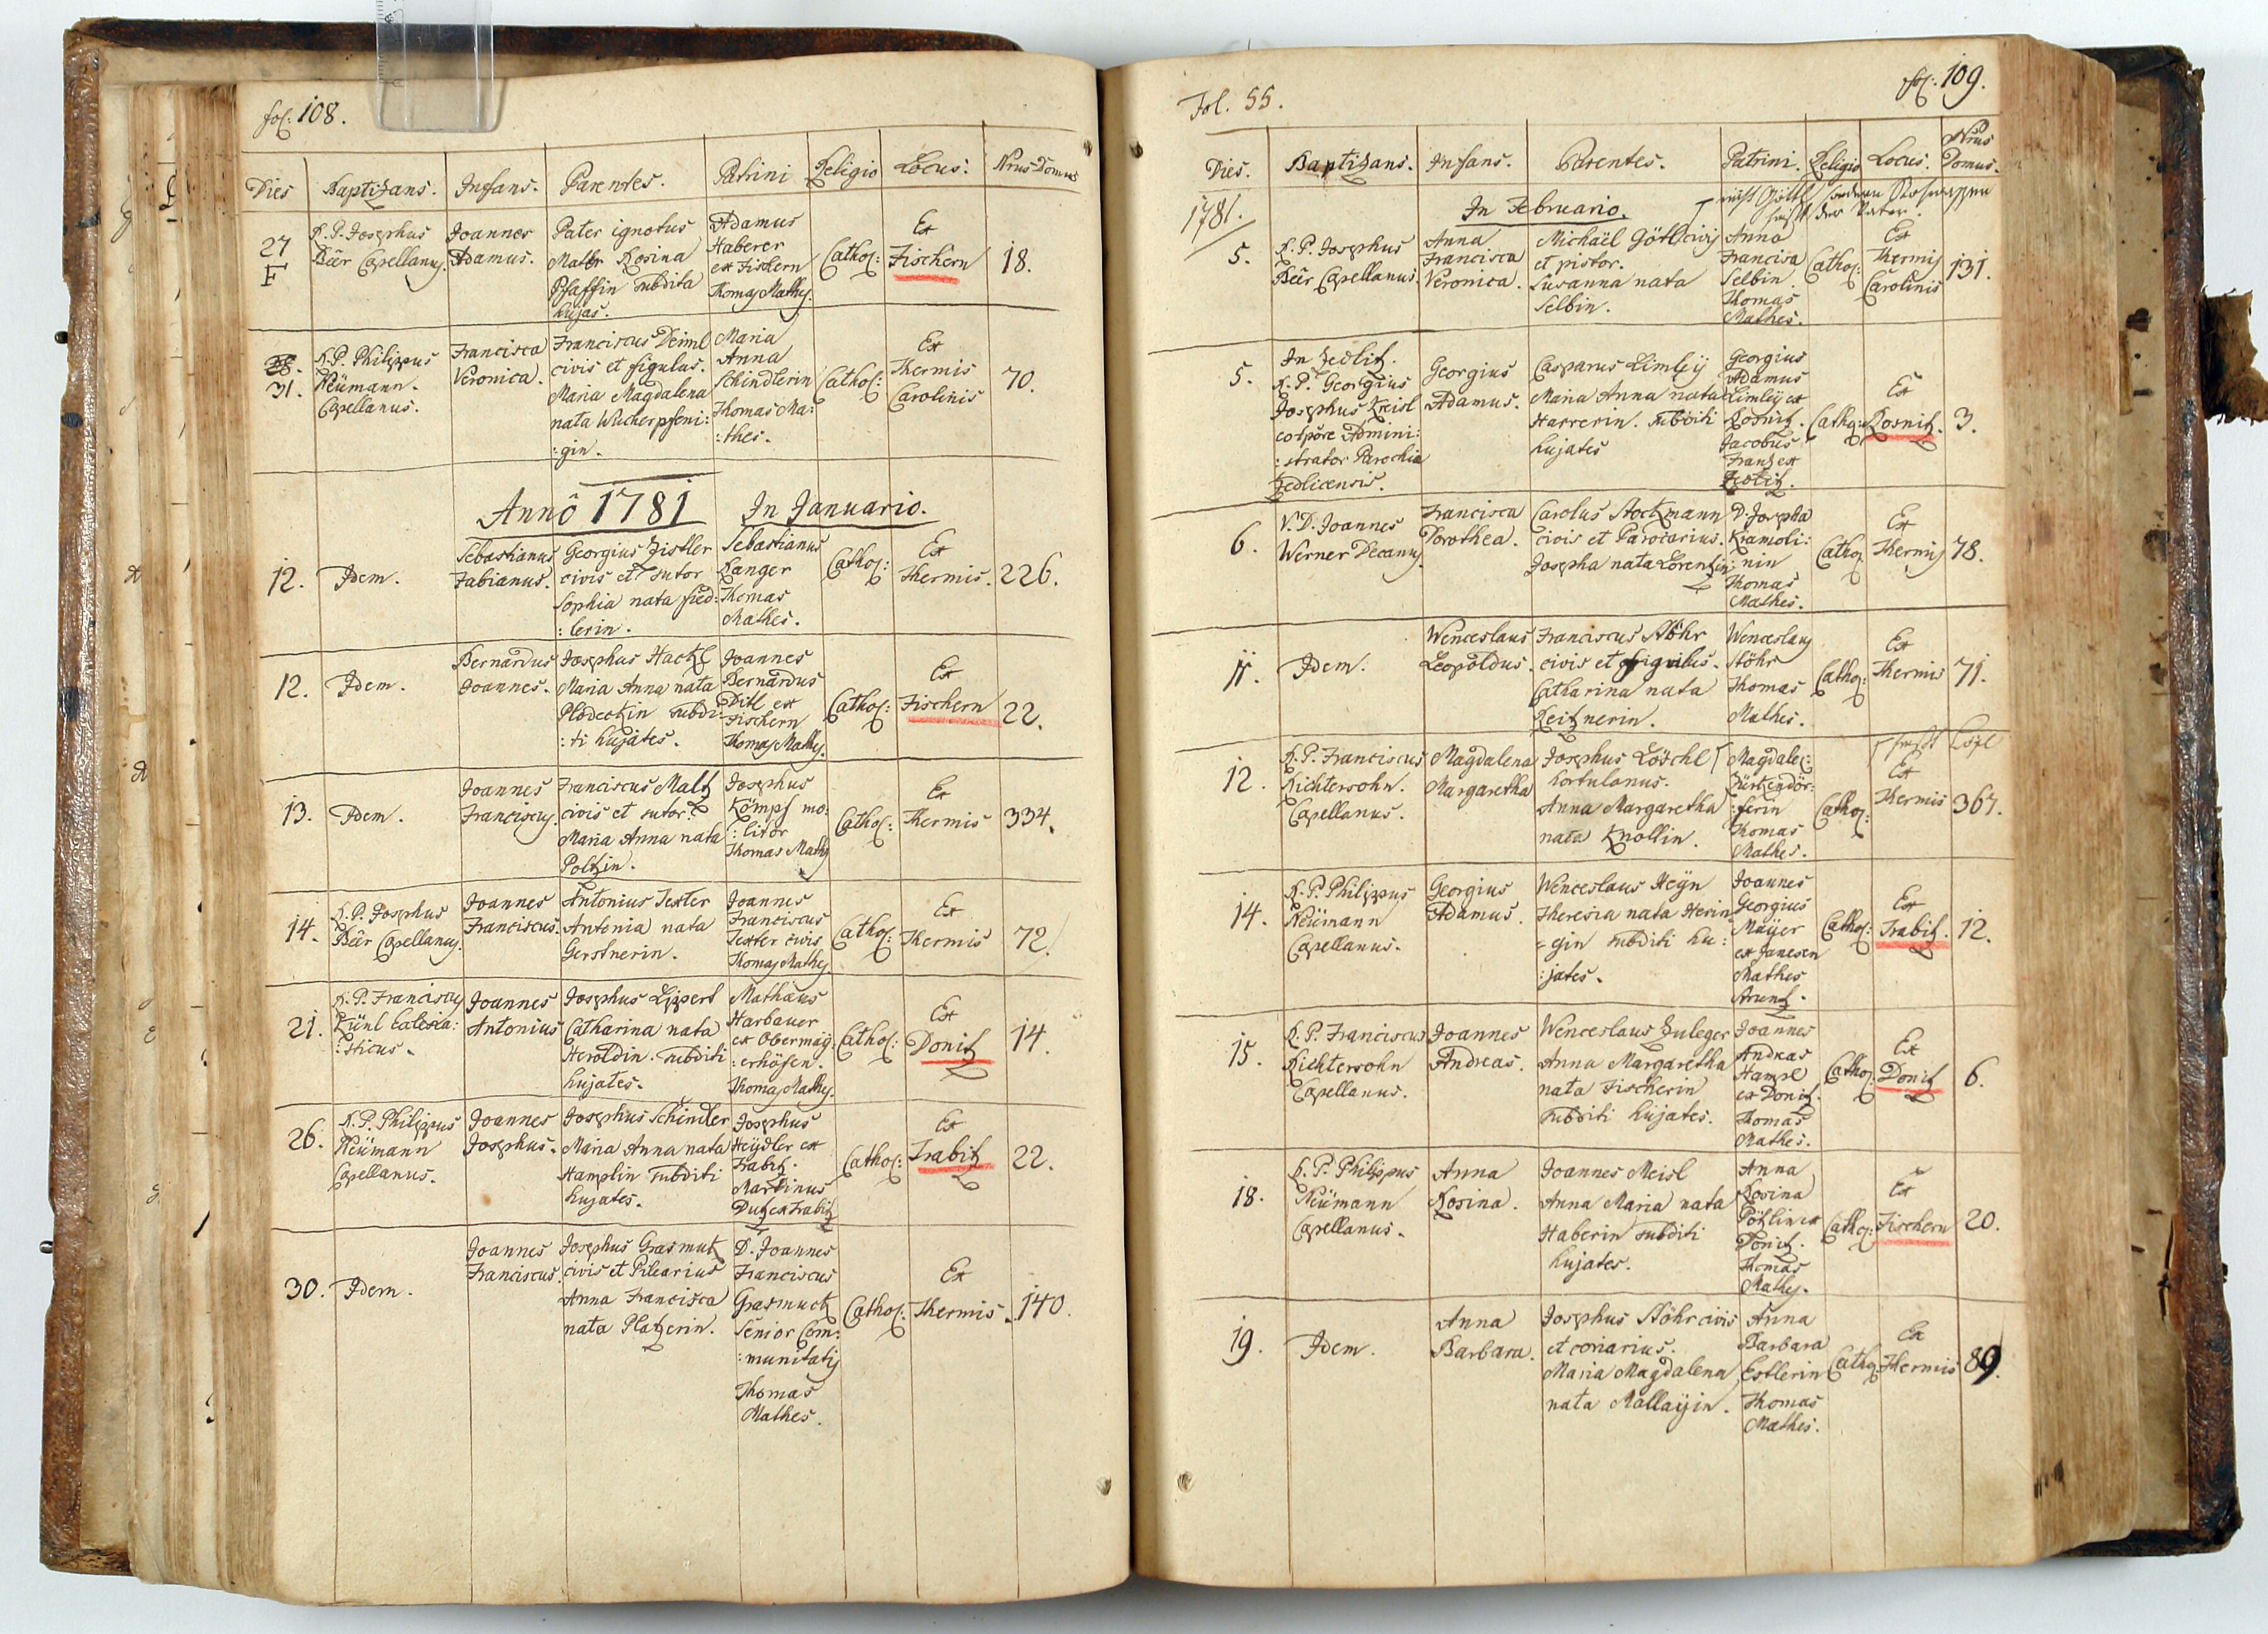 fol: 108.
Dies Baptizans. Infans. Parentes. Patrini Religio Locus: Nrus Domus
27 F
R. P. Josephus
Bëer Capellanus.
Joannes
Adamus.
Pater ignotus
Mater Rosina
Pfaffin subdita
hujas.
Adamus
Haberer
ex Fischern
Thomas Mathes.
Cathol:
Ex
Fischern
18.
31.
R. P. Philippus
Neümann.
Capellanus.
Francisca
Veronica.
Franciscus Deiml
civis et figulus.
Maria Magdalena
nata Wucherpfeni:
:gin.
Maria
Anna
Schindlerin
Thomas Ma:
:thes.
Cathol:
Ex
Thermis
Carolinis
70.
Annô 1781 In Januario.
12.
Idem.
Sebastianus
Fabianus.
Georgius Zistler
civis et sutor
Sophia nata fied:
:lerin.
Sebastianus
Langer
Thomas
Mathes.
Cathol:
Ex
Thermis.
226.
12.
Idem.
Bernardus
Joannes.
Josephus Hackl
Maria Anna nata
Plodeckin subdi:
:ti hujates.
Joannes
Bernardus
Ditl ex
Fischern
Thomas Mathes.
Cathol:
Ex
Fischern
22.
13.
Idem.
Joannes
Franciscus.
Franciscus Maltz
civis et sutor.
Maria Anna nata
Poltzin.
Josephus
Kömpf mo:
:litor
Thomas Mathes
Cathol:
Ex
Thermis
334.
14.
R. P. Josephus
Bëer Capellanus.
Joannes
Franciscus.
Antonius Texter
Antonia nata
Gerstnerin.
Joannes
Franciscus
Texter civis
Thomas Mathes.
Cathol:
Ex
Thermis
72.
21.
R. P. Franciscus
Künl Ecclesia:
:sticus.
Joannes
Antonius
Josephus Lippert
Catharina nata
Heroldin. subditi
hujates.
Mathaus
Harbauer
ex Obermaÿ
:erhöfen.
Thomas Mathes.
Cathol:
Ex
Donitz
14.
26.
R. P. Philippus
Neümann
Capellanus.
Joannes
Josephus.
Josephus Schindler
Maria Anna nata
Hamplin subditi
hujates.
Josephus
Heÿdler ex
Trabitz.
Martinus
Dutz ex Trabitz
Cathol:
Ex
Trabitz
22.
30.
Idem.
Joannes
Franciscus.
Josephus Grasmuck
civis et Pilearius
Anna Francisca
nata Platzerin.
D. Joannes
Franciscus
Grasmuck
Senior Com:
:munitatis
Thomas
Mathes.
Cathol:
Ex
Thermis.
140.
Fol. 55.
fol: 109.
Dies. Baptizans. Infans. Parentes. Patrini. Religio Locus. Nrus Domus.
1781.
In Februario.
nicht Götl sondern
heißt der Vater.
5.
R. P. Josephus
Bëer Capellanus.
Anna
Francisca
Veronica.
Michaël Götl civis
et pistor.
Susanna nata
Selbin.
Anna
Francisca
Selbin
Thomas
Mathes.
Cathol:
Ex
Thermis
Carolinis
131.
5.
In Zedlitz.
R. P. Georgius
Josephus Kreisl
Admini:
:strator Parochiæ
Zedlicensis.
Georgius
Adamus.
Casparus Limleÿ
Maria Anna nata
Harrerin. subditi
hujates
Georgius
Adamus
Limleÿ ex
Rosnitz.
Jacobus
Frantz ex
Zedtlitz.
Cathol:
Ex
Rosnitz.
3.
6.
V. D. Joannes
Werner Decanus.
Francisca
Dorothea.
Carolus Stockmann
civis et Parocarius.
Josepha nata Lorentzin
D. Josepha
Kramoli:
:nin
Thomas
Mathes.
Cathol:
Ex
Thermis
78.
11.
Idem.
Wenceslaus
Leopoldus.
Franciscus Stöhr
civis et figulus.
Catharina nata
Reitznerin.
Wenceslaus
Stöhr
Thomas
Mathes.
Cathol:
Ex
Thermis
71.
12.
R. P. Franciscus
Richtersohn.
Capellanus.
Magdalena
Margaretha
Josephus Löschl
hortulanus.
Anna Margaretha
nata Knollin.
Magdale:
Zürkendör:
:ferin
Thomas
Mathes.
Cathol:
heißt Lösl
Ex
Thermis
367.
14.
R. P. Philippus
Neümann
Capellanus.
Georgius
Adamus.
Wenceslaus Heÿn
Theresia nata Herin
=gin subditi hu:
:jates.
Joannes
Georgius
Maÿer
ex Janesen
Mathes
Arentz.
Cathol:
Ex
Trabitz.
12.
15.
R. P. Franciscus
Richtersohn
Capellanus.
Joannes
Andreas.
Wenceslaus Zuleger
Anna Margaretha
nata Fischerin
subditi hujates.
Joannes
Andreas
Hampl
ex Donitz.
Thomas
Mathes.
Cathol:
Ex
Donitz
6.
18.
R. P. Philippus
Neümann
Capellanus.
Anna
Rosina.
Joannes Meisl
Anna Maria nata
Haberin subditi
hujates.
Anna
Rosina
Pötzlin ex
Donitz.
Thomas
Mathes.
Cathol:
Ex
Fischern
20.
19.
Idem.
Anna
Barbara.
Josephus Stöhr civis
et coriarius.
Maria Magdalena
nata Mallaÿin.
Anna
Barbara
Estlerin
Thomas
Mathes.
Cathol:
Ex
Thermis
89.